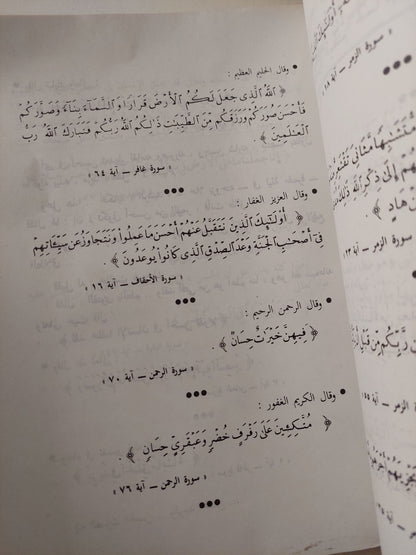 • وقال الحليم العظيم :
﴿ ٱللَّهُ ٱلَّذِى جَعَلَ لَكُمُ ٱلْأَرْضَ قَرَارًا وَٱلسَّمَآءَ بِنَآءً وَصَوَّرَكُمْ
فَأَحْسَنَ صُوَرَكُمْ وَرَزَقَكُم مِّنَ ٱلطَّيِّبَٰتِ ذَٰلِكُمُ ٱللَّهُ رَبُّكُمْ فَتَبَارَكَ ٱللَّهُ رَبُّ
ٱلْعَٰلَمِينَ ﴾ .
« سورة غافر – آية ٦٤ »
•••
• وقال العزيز الغفار :
﴿ أُو۟لَٰٓئِكَ ٱلَّذِينَ نَتَقَبَّلُ عَنْهُمْ أَحْسَنَ مَا عَمِلُوا۟ وَنَتَجَاوَزُ عَن سَيِّـَٔاتِهِمْ
فِىٓ أَصْحَٰبِ ٱلْجَنَّةِ وَعْدَ ٱلصِّدْقِ ٱلَّذِى كَانُوا۟ يُوعَدُونَ ﴾ .
« سورة الأحقاف – آية ١٦ »
•••
• وقال الرحمن الرحيم :
﴿ فِيهِنَّ خَيْرَٰتٌ حِسَانٌ ﴾ .
« سورة الرحمن – آية ٧٠ »
•••
• وقال الكريم الغفور :
﴿ مُتَّكِـِٔينَ عَلَىٰ رَفْرَفٍ خُضْرٍ وَعَبْقَرِىٍّ حِسَانٍ ﴾ .
« سورة الرحمن – آية ٧٦ »
•••
سورة الزمر – آية ١٨
مَّثَانِىَ تَقْشَعِرُّ
إِلَىٰ ذِكْرِ ٱللَّهِ
هَادٍ ﴾
سورة الزمر – آية
رَّبِّكُم مِّن قَبْلِ